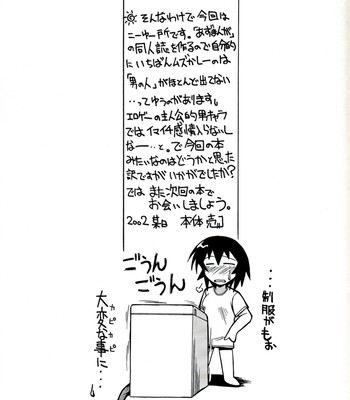 そんなわけで今回は
こーゆー所です。「あずまんが」
の同人誌を作るので自分的
にいちばんムズかしーのは
「男の人」がほとんど出てない
…ってゆうのがあります。
エロゲーの主人公的男キャラ
ではイマイチ感情入らないし
なー…と。で今回の本
みたいなのはどうかと思った
訳ですがいかがでしたか?
では また次回の本で
お会いしましょう。
2002
ごうん
ごうん
…制服がもお
大変な事に…
カピ
カピ